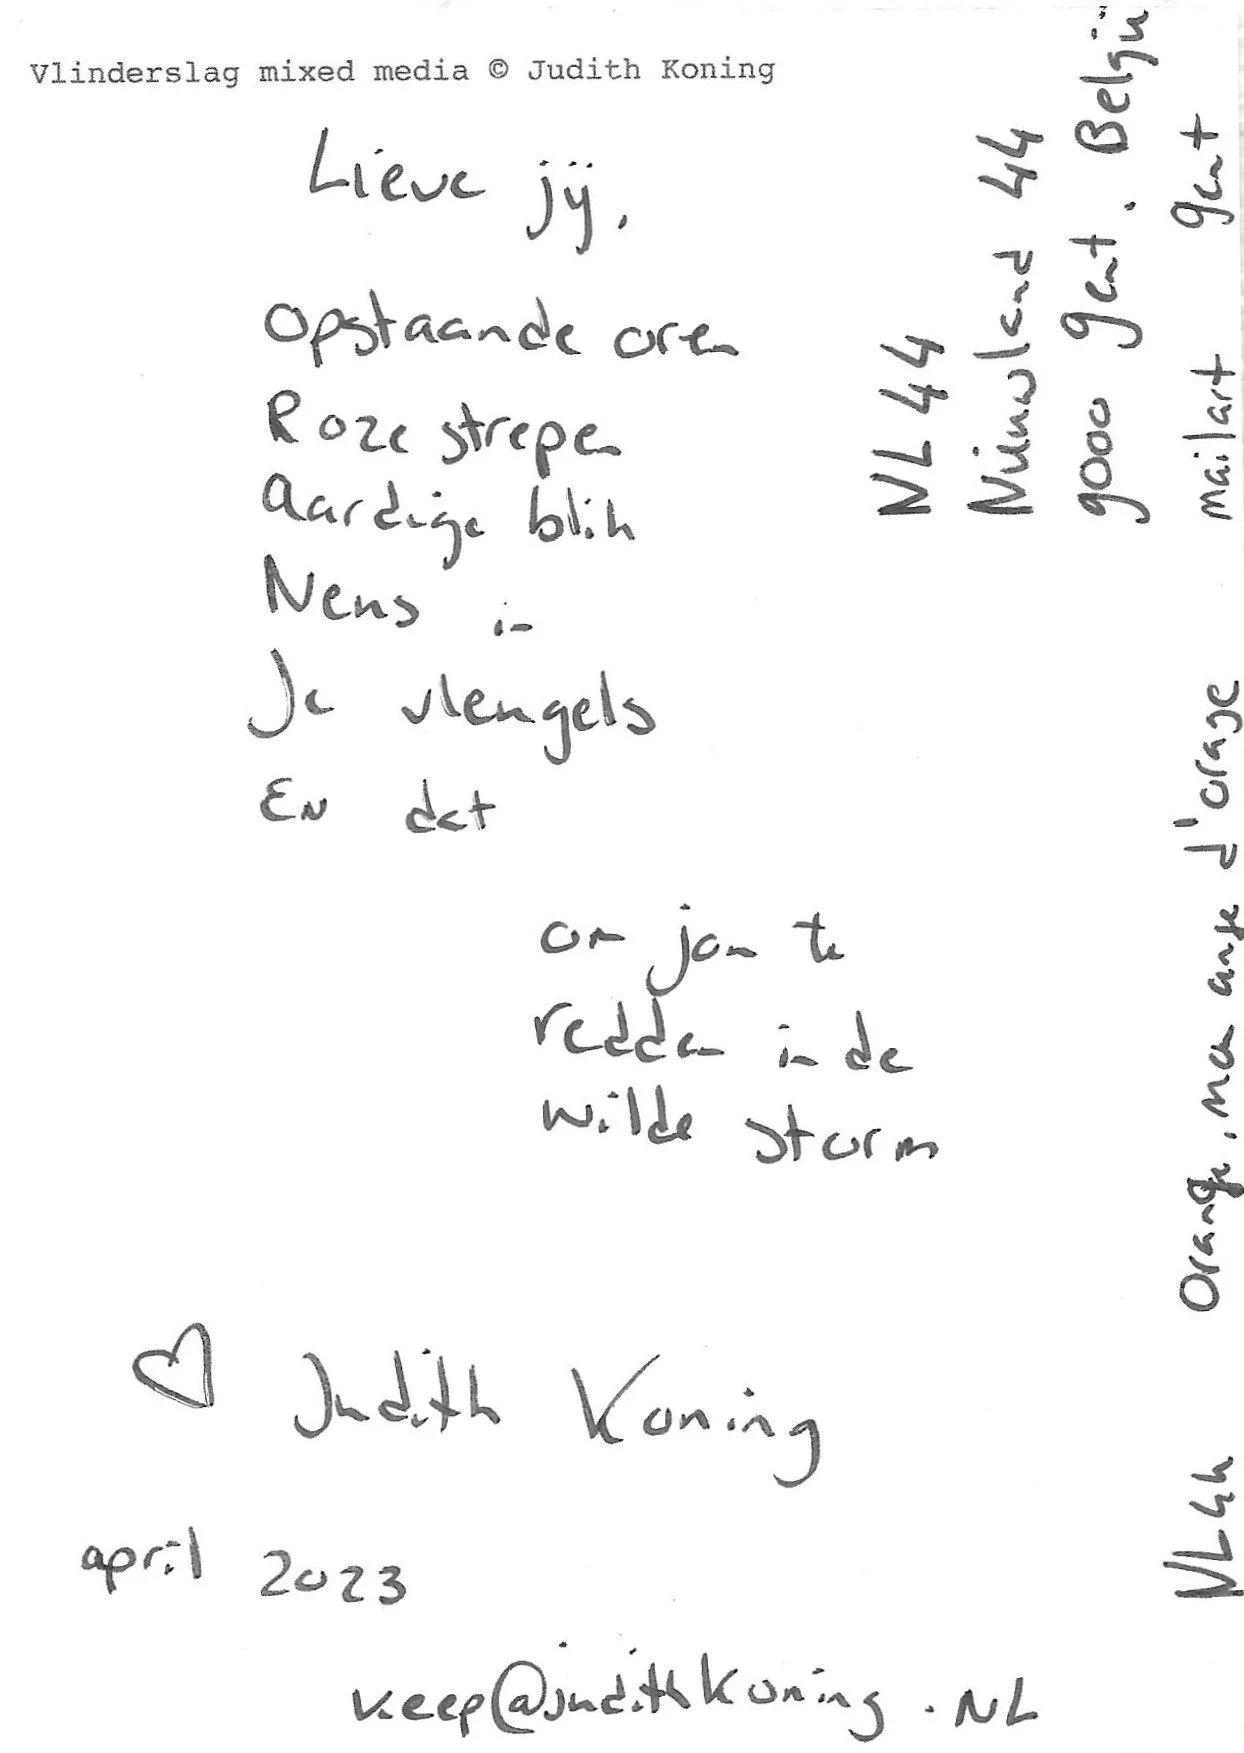 Vlinderslag mixed media © Judith Koning
Lieve jij,
Opstaande oren
Roze strepen
Aardige blik
Neus in
Je vleugels
En dat
om jou te
redden in de
wilde storm
♡ Judith Koning
april 2023
keep@judithkoning.NL
NL 44
Nieuwland 44
9000 gent. België
mailart gent
NL44 Orange, mon ange d'orage